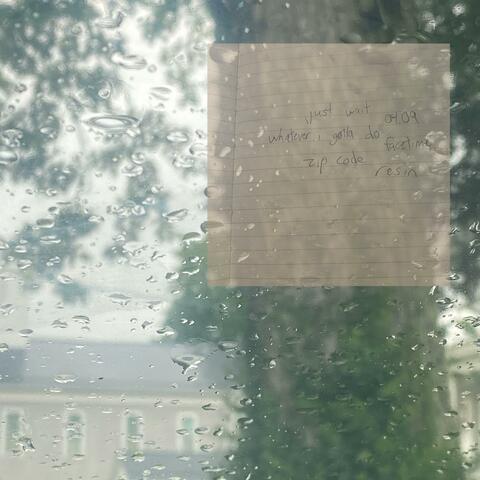 just wait
04.09
whatever, i gotta do
facetime
zip code
resin